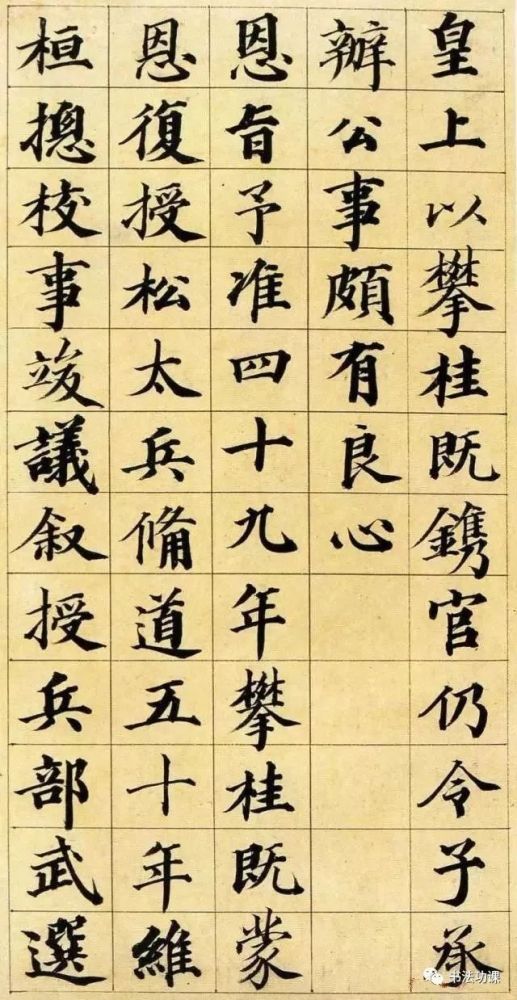 皇上以攀桂既鐫官仍令子承
辦公事頗有良心
恩旨予准四十九年攀桂既蒙
恩復授松太兵備道五十年維
桓摠校事竣議叙授兵部武選
书法功课